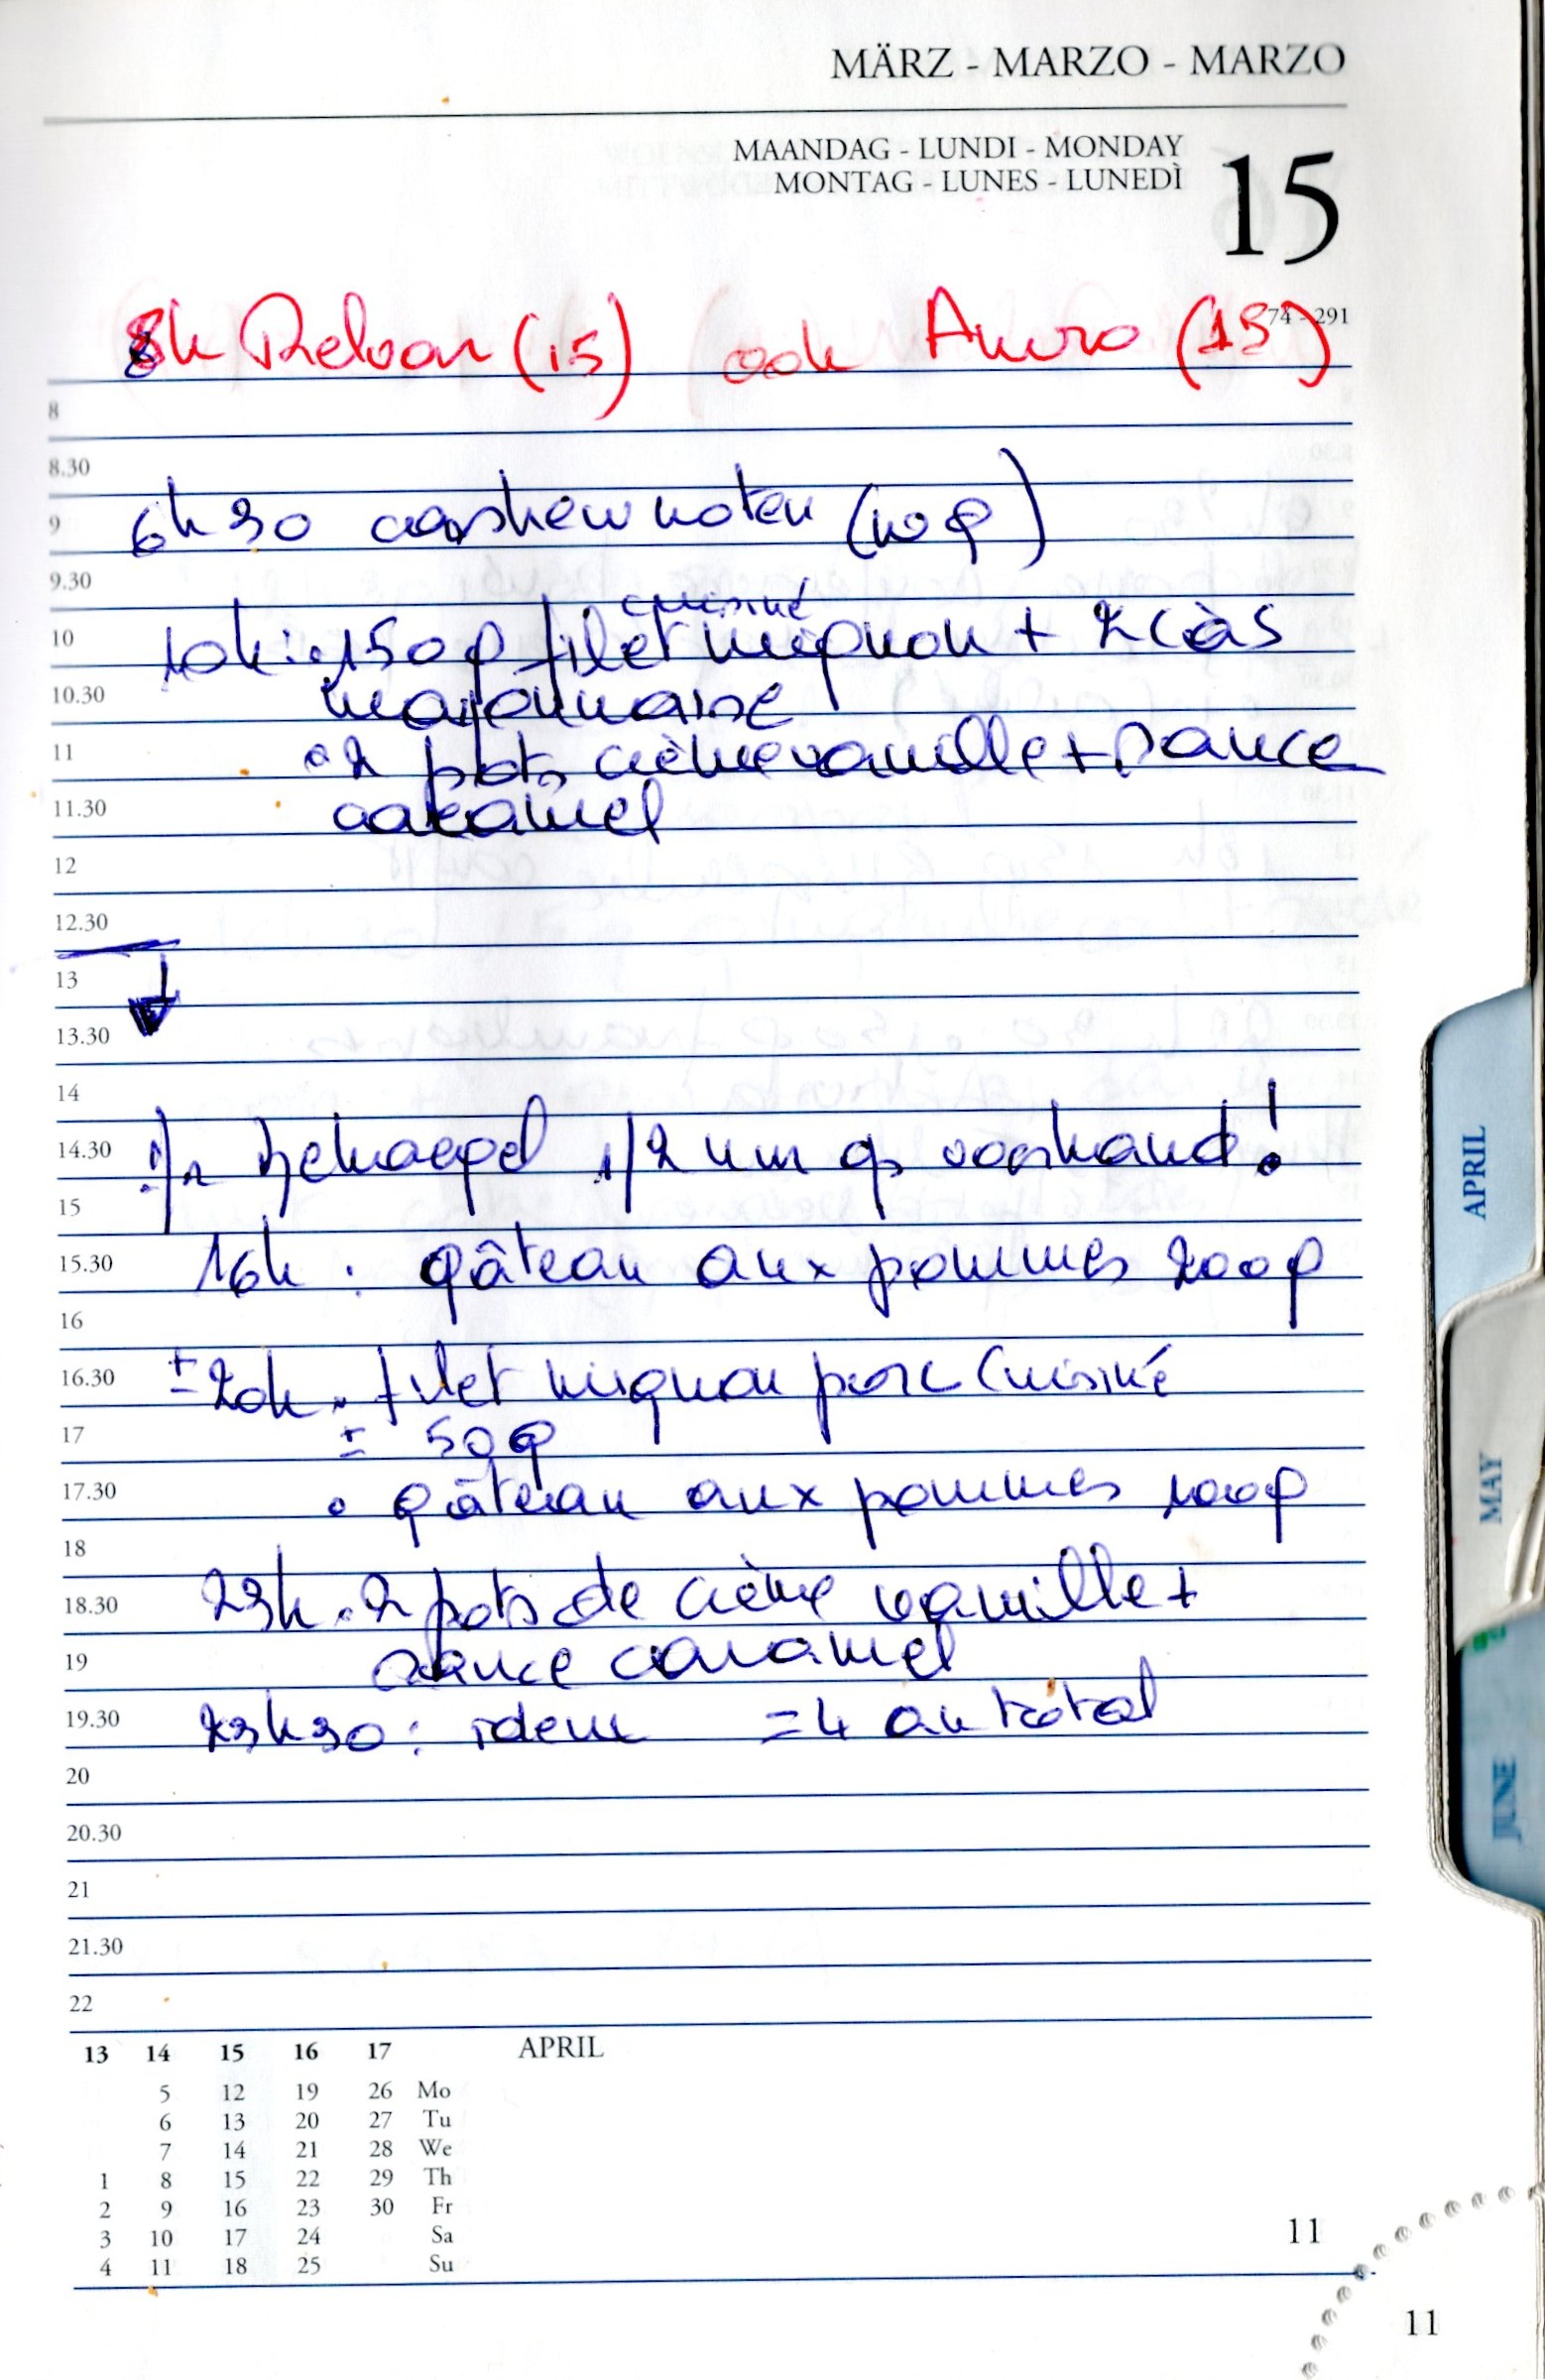 MÄRZ - MARZO - MARZO
MAANDAG - LUNDI - MONDAY
MONTAG - LUNES - LUNEDÌ
15
74 - 291
8h Relvar (15) ook Anoro (15)
8
8.30
9 6h30 cashewnoten (10g)
9.30
cuisiné
10 10h: • 150g filet mignon + 2 càs
10.30 mayonnaise
11 • 2 pots crème vanille + sauce
11.30 caramel
12
12.30
13
13.30
14
14.30 1/2 1/2 voorhand!
15
15.30 16h : gâteau aux pommes 200g
16
16.30 ± 20h • filet mignon porc cuisiné
17 ± 50g
17.30 • gâteau aux pommes 100g
18
18.30 23h • 2 pots de crème vanille +
19 sauce caramel
19.30 23h30 : idem = 4 au total
20
20.30
21
21.30
22
13 14 15 16 17 APRIL
5 12 19 26 Mo
6 13 20 27 Tu
7 14 21 28 We
1 8 15 22 29 Th
2 9 16 23 30 Fr
3 10 17 24 Sa
4 11 18 25 Su
11
11
APRIL
MAY
JUNE